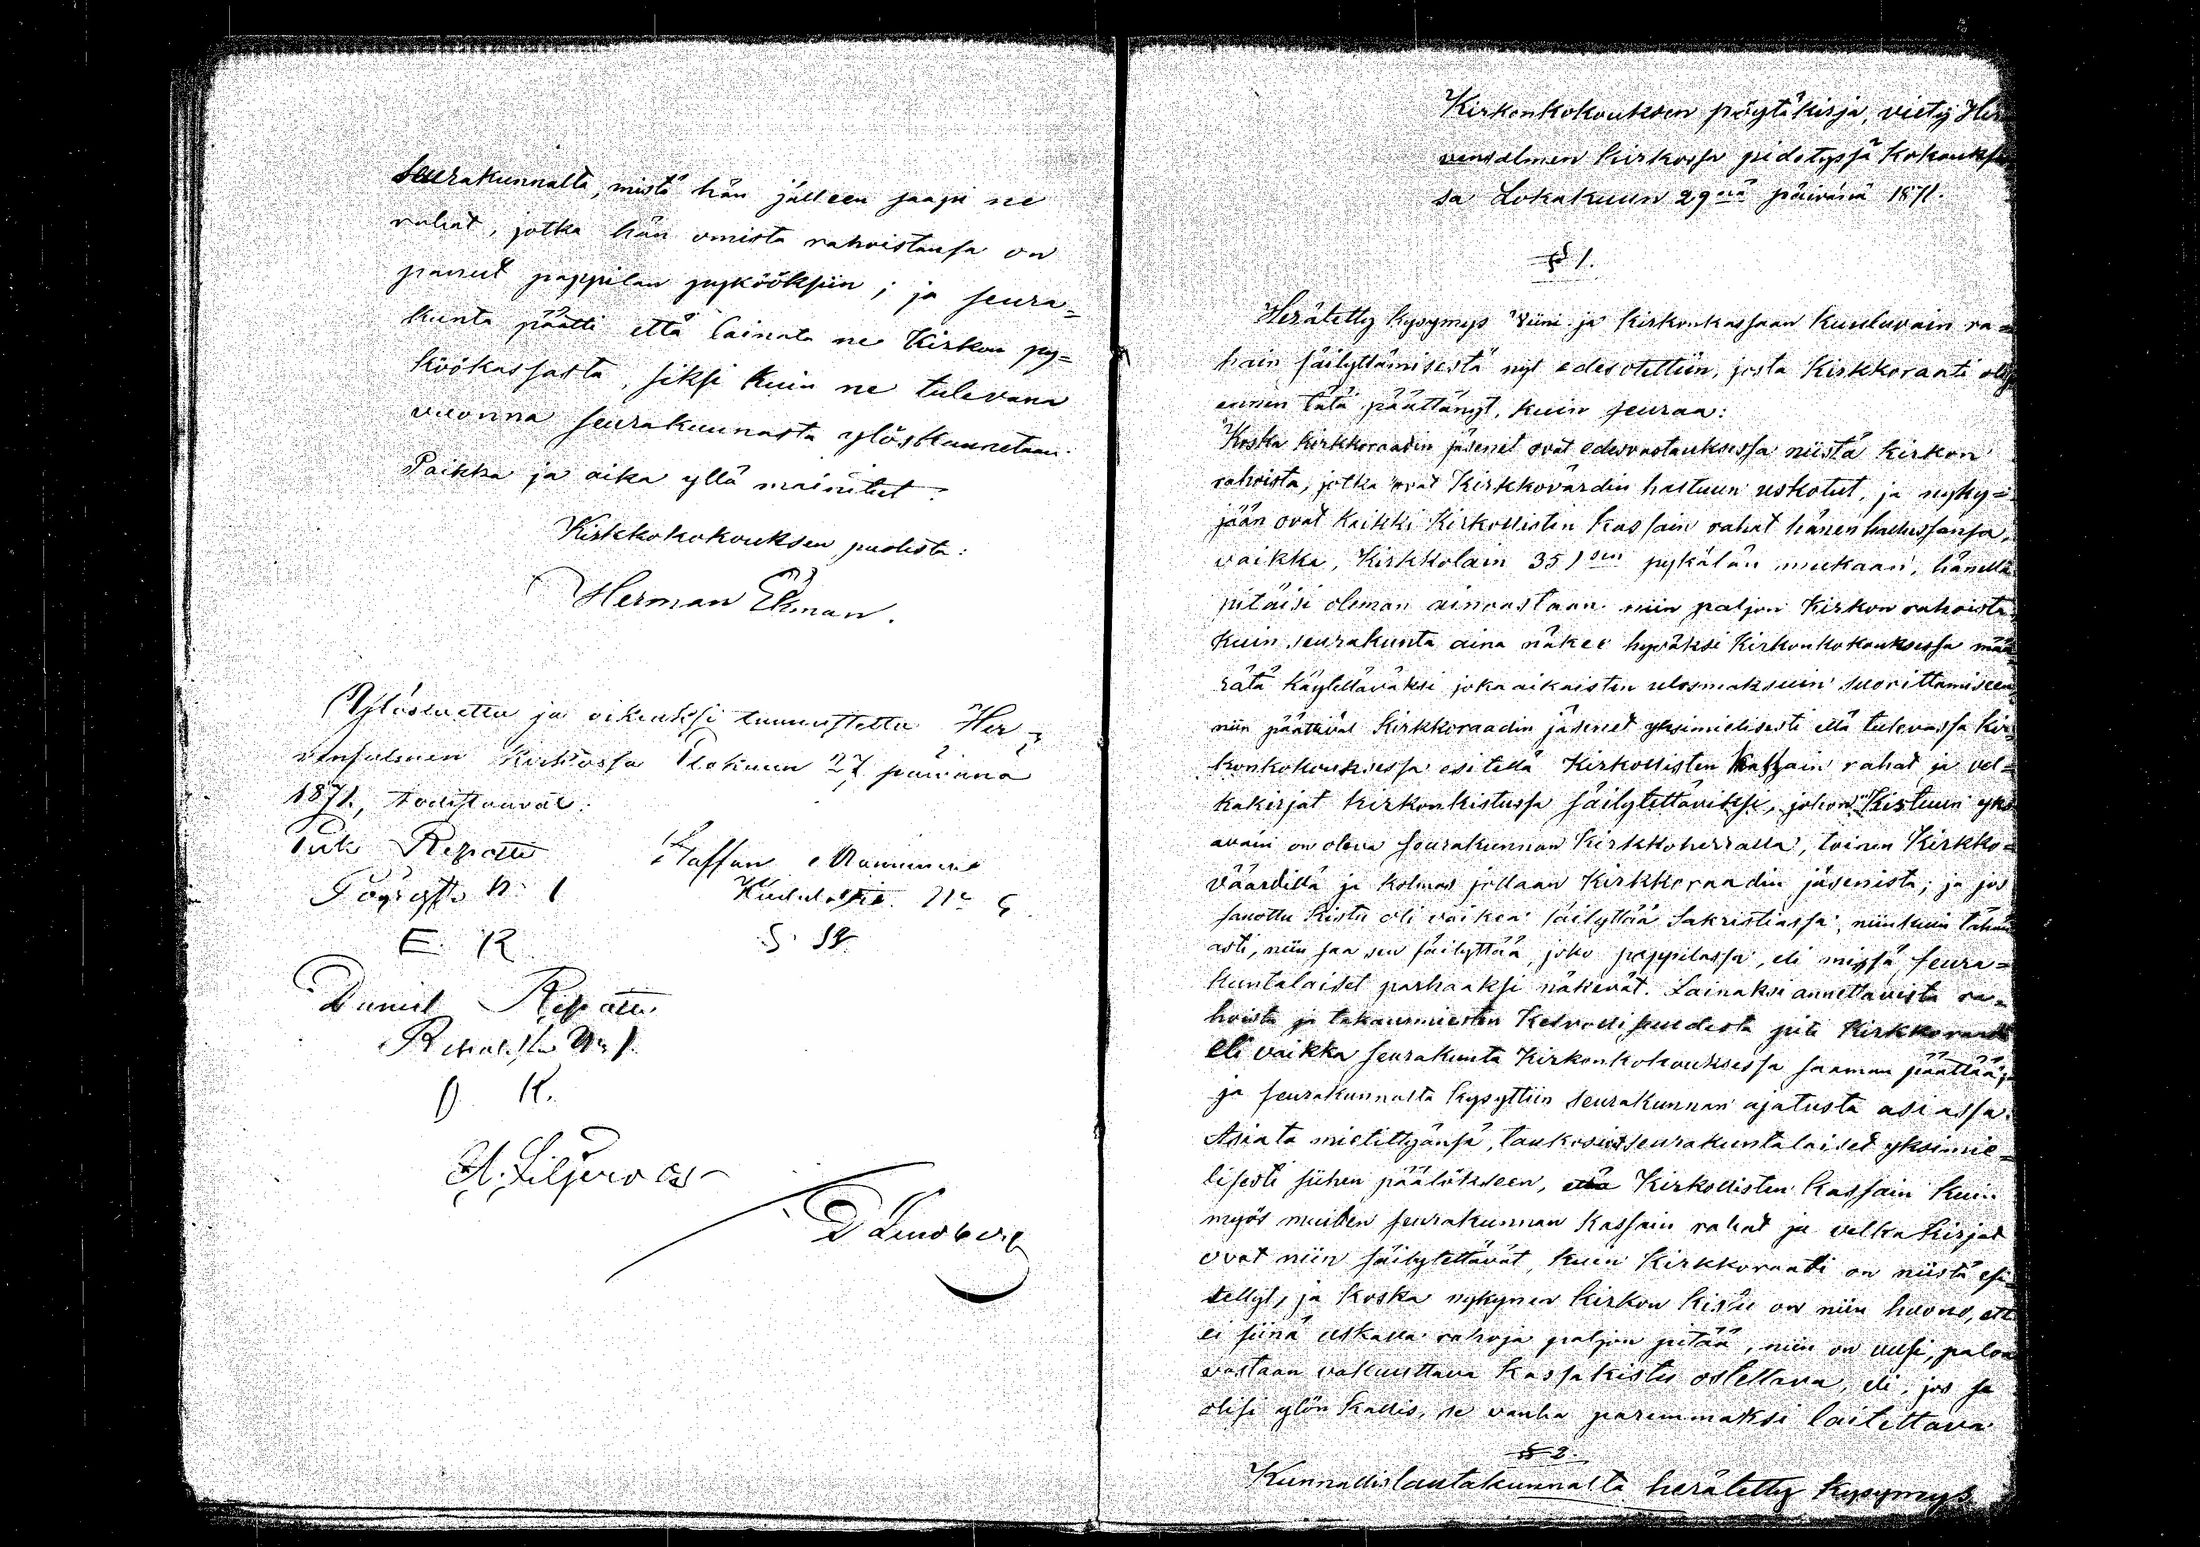 seurakunnalta, mistä hän jälleen saapi ne
rahat, jotka hän omista rahoistansa on
panut pappilan pykööksiin; ja seura=
kunta päätti että lainata ne Kirkon py=
köökassasta, siksi kuin ne tulevana
vuonna seurakunnasta ylöskannetaan.
Paikka ja aika yllä mainitut.
Kirkkokokouksen puolesta:
Herman Ekman.
Ylösluettu ja oikeaksi tunnustettu Her=
vensalmen Kirkossa Elokuun 27 päivänä
1871, todistavat:
Repatti Staffan Manninen
No 1 No 6
E. R. S. M.
Daniel Repatti
No 1.
D. R.
A. Liljeroos
D Lindberg
Kirkonkokouksen pöytäkirja, viety Hir
vensalmen kirkossa pidetyssä kokoukses
sa Lokakuun 29nä päivänä 1871.
§ 1.
Herätetty kysymys viini ja kirkonkassaan kuuluvain ra=
hain säilyttämisestä nyt edesotettiin, josta Kirkkoraati oli
ennen tätä päättänyt, kuin seuraa:
Koska kirkkoraadin jäsenet ovat edesvastauksessa niistä kirkon
rahoista, jotka ovat Kirkkovärdin haltuun uskotut, ja nyky=
jään ovat kaikki Kirkollisten kassain rahat hänen hallussansa,
vaikka, Kirkkolain 351sen pykälän mukaan, hänellä
pitäisi oleman ainoastaan niin paljon Kirkon rahoista,
kuin seurakunta aina näkee hyväksi Kirkonkokouksessa mää
rätä käytettäväksi jokaaikaisten ulosmaksuin suorittamiseen,
niin päättivät Kirkkoraadin jäsenet yksimielisesti että tulevassa kir=
konkokouksessa esitellä Kirkollisten kassain rahat ja vel=
kakirjat kirkonkistussa säilytettäviksi, johon Kistuun yksi
avain on oleva seurakunnan Kirkkoherralla, toinen Kirkko=
väärdillä ja kolmas jollaan Kirkkoraadin jäsenistä; ja jos
sanottu kistu oli vaikea säilyttää Sakristiassa, niinkuin tähän
asti, niin saa sen säilyttää, joko pappilassa, eli missä seura=
kuntalaiset parhaaksi näkevät. Lainaksi annettavista ra=
hoista ja takausmiesten Kelvollisuudesta piti Kirkkoraati
eli vaikka seurakunta Kirkonkokouksessa saaman päättää;
ja seurakunnalta kysyttiin seurakunnan ajatusta asiassa.
Asiata mietittyänsä, seurakuntalaiset yksimie=
lisesti siihen päätökseen, että Kirkollisten kassain kuin
myös muiden seurakunnan kassain rahat ja velkakirjat
ovat niin säilytettävät, kuin Kirkkoraati on niistä esi=
tellyt, ja koska nykynen kirkon kistu on niin huono, ett
ei siinä uskalla rahoja paljon pitää, niin on uusi, paloa
vastaan vakuuttava kassakistu ostettava, eli, jos se
olisi ylön kallis, se vanha paremmaksi laitettava
§ 2.
Kunnallislautakunnalta herätetty kysymys